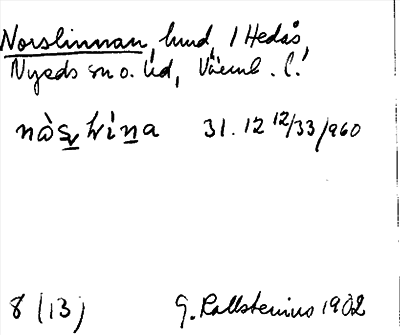 Norslinnan, lund, 1 Hedås,
Nyeds sn o. hd, Värml. l.
31.12 12/33/960
8 (13) G. Kallstenius 1902